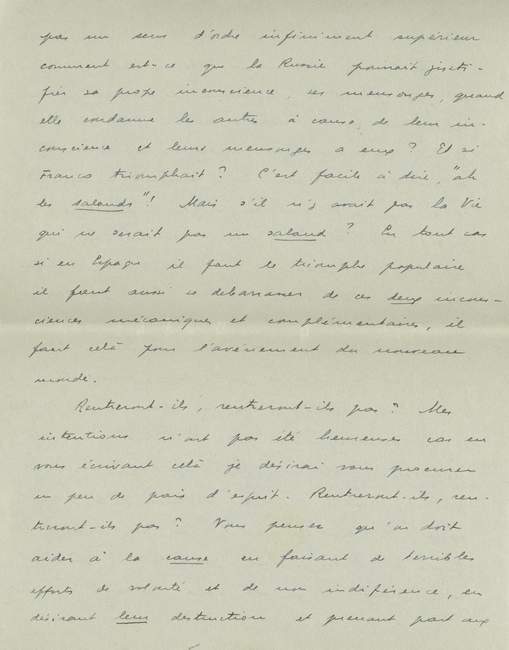 pas un sens d'ordre infiniment supérieur
comment est-ce que la Russie pourrait justi-
fier sa propre inconscience, ses mensonges, quand
elle condamne les autres à cause de leur in-
conscience et leurs mensonges a eux? Et si
Franco triomphait? C'est facile à dire, "ah
les salauds"! Mais s'il n'y avait pas la Vie
qui ne serait pas un salaud? En tout cas
si en Espagne il faut le triomphe populaire
il faut aussi se debarrasser de ces deux incons-
ciences mécaniques et complémentaires, il
faut celà pour l'avénement du nouveau
monde.
Rentreront-ils, rentreront-ils pas? Mes
intentions n'ont pas été heureuses car en
vous écrivant celà je désirai vous procurer
un peu de paix d'esprit. Rentreront-ils, ren-
treront-ils pas? Vous pensez qu'on doit
aider à la cause en faisant de terribles
efforts de volonté et de non indifférence, en
désirant leur destruction et prenant part aux